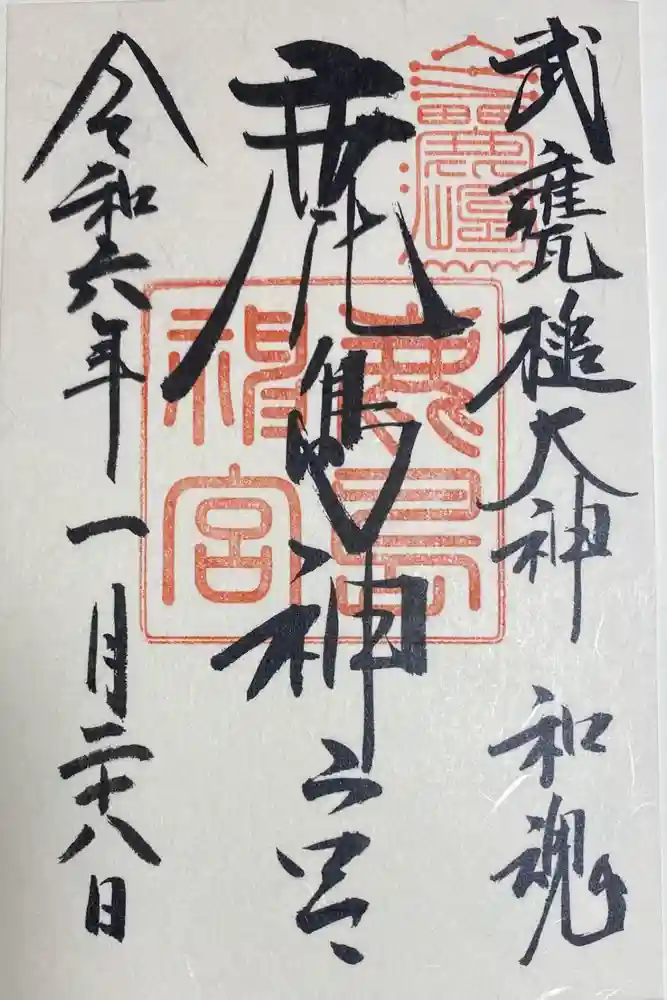 武甕槌大神 和魂
鹿島神宮
鹿島神宮
令和六年一月二十八日